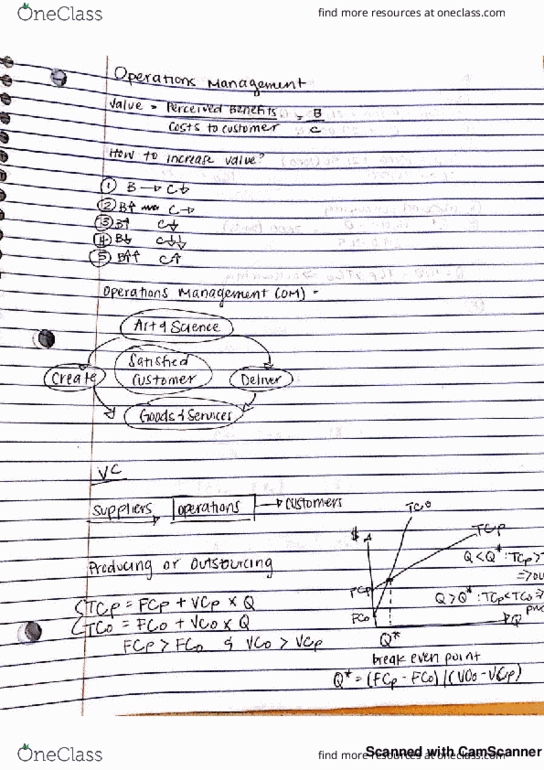 OneClass
find more resources at oneclass.com
Operations Management
Value = Perceived Benefits = B
Costs to customer C
How to increase value?
① B → C↓
② B↑ C→
③ B↑ C↓
④ B↓ C↓↓
⑤ B↑↑ C↑
Operations Management (OM) -
Art & Science
Satisfied
Customer
Create
Deliver
Goods & Services
VC
Suppliers → operations → customers
Producing or Outsourcing
TCp = FCp + VCp × Q
TCo = FCo + VCo × Q
FCp > FCo & VCo > VCp
$
TCo
TCp
Q < Q* : TCp >
FCp
Q > Q* : TCp < TCo ⇒
FCo
Q
Q*
break even point
Q* = (FCp - FCo) / (VCo - VCp)
OneClass
find more resources at oneclass.com
Scanned with CamScanner